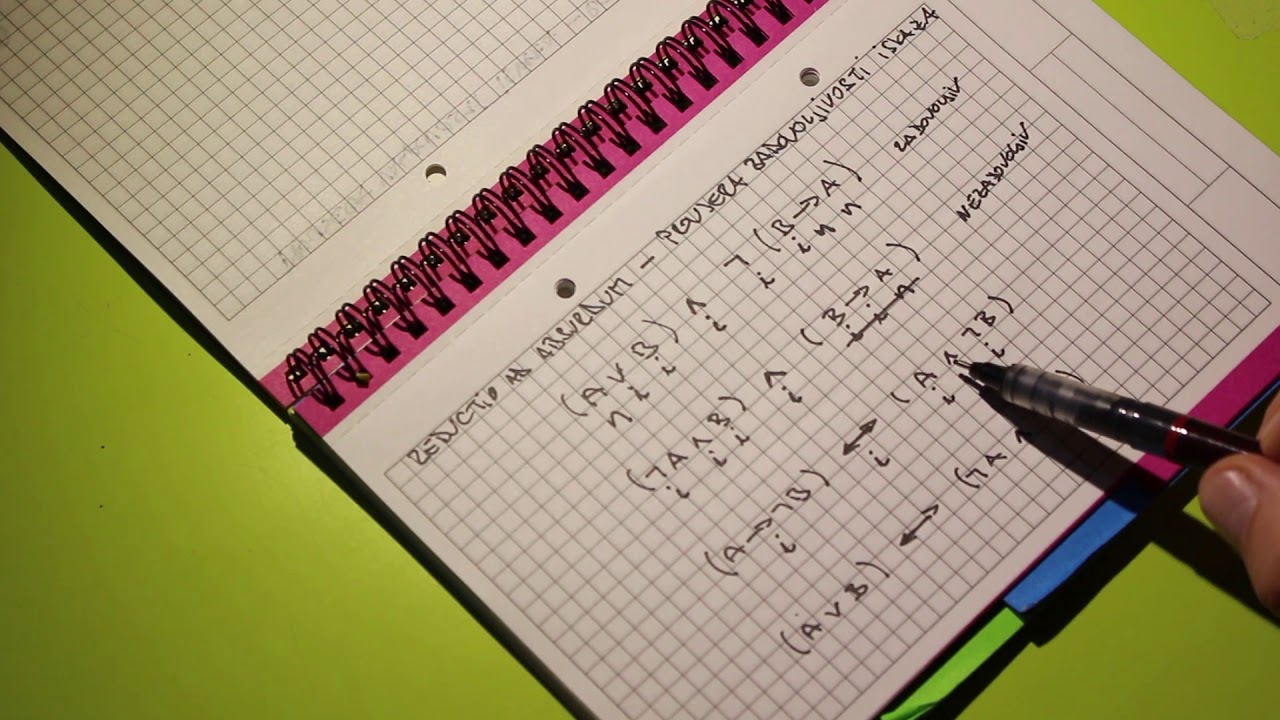 REDUCTIO AD ABSURDUM - PROVJERA ZADOVOLJIVOSTI ISKAZA
(A ∨ B) ∧ ¬ (B → A) ZADOVOLJIV
n i i i i i n n
(¬A ∧ B) ∧ (B → A) NEZADOVOLJIV
i i i i i i n
(A → ¬B) ↔ (A ∧ ¬B)
i i i i
(A ∨ B) ↔ (¬A ∧